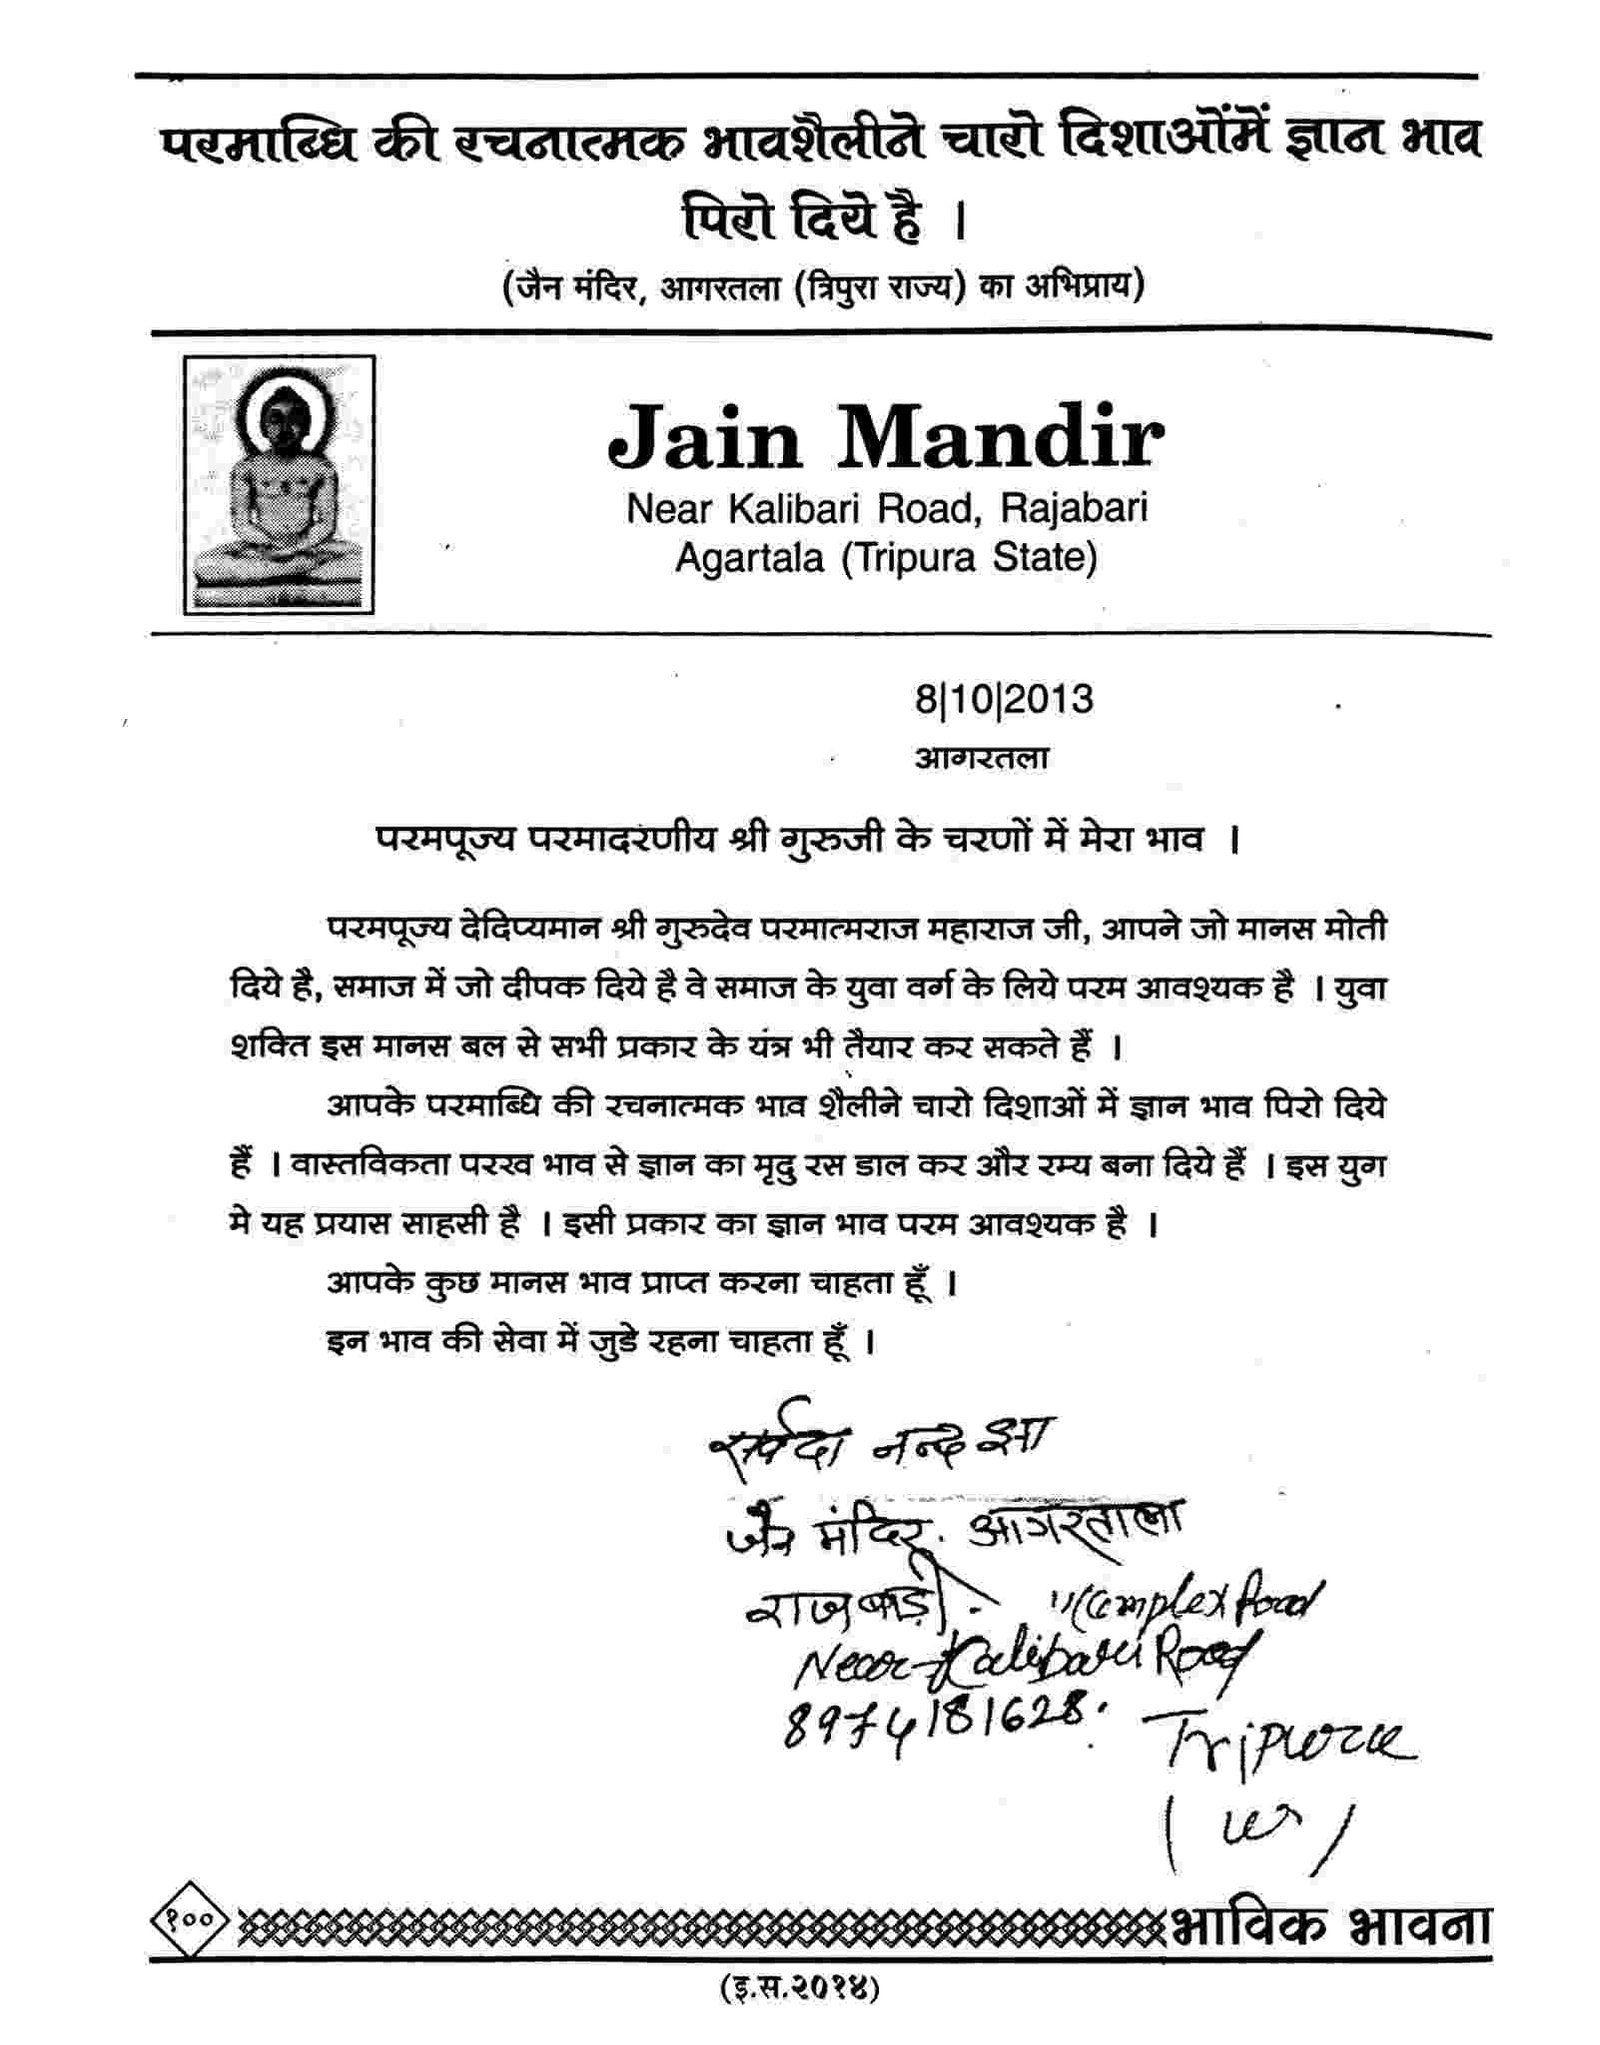 परमाब्धि की रचनात्मक भावशैलीने चारो दिशाओंमें ज्ञान भाव
पिरो दिये है ।
(जैन मंदिर, आगरतला (त्रिपुरा राज्य) का अभिप्राय)
Jain Mandir
Near Kalibari Road, Rajabari
Agartala (Tripura State)
8|10|2013
आगरतला
परमपूज्य परमादरणीय श्री गुरुजी के चरणों में मेरा भाव ।
परमपूज्य देदिप्यमान श्री गुरुदेव परमात्मराज महाराज जी, आपने जो मानस मोती
दिये है, समाज में जो दीपक दिये है वे समाज के युवा वर्ग के लिये परम आवश्यक है । युवा
शक्ति इस मानस बल से सभी प्रकार के यंत्र भी तैयार कर सकते हैं ।
आपके परमाब्धि की रचनात्मक भाव शैलीने चारो दिशाओं में ज्ञान भाव पिरो दिये
हैं । वास्तविकता परख भाव से ज्ञान का मृदु रस डाल कर और रम्य बना दिये हैं । इस युग
मे यह प्रयास साहसी है । इसी प्रकार का ज्ञान भाव परम आवश्यक है ।
आपके कुछ मानस भाव प्राप्त करना चाहता हूँ ।
इन भाव की सेवा में जुडे रहना चाहता हूँ ।
नन्द झा
जैन मंदिर. आगरताला
राजबाड़ी. Complex Road
Near Kalibari Road
8974181628.
Tripura
(W)
१०० भाविक भावना
(इ.स.२०१४)